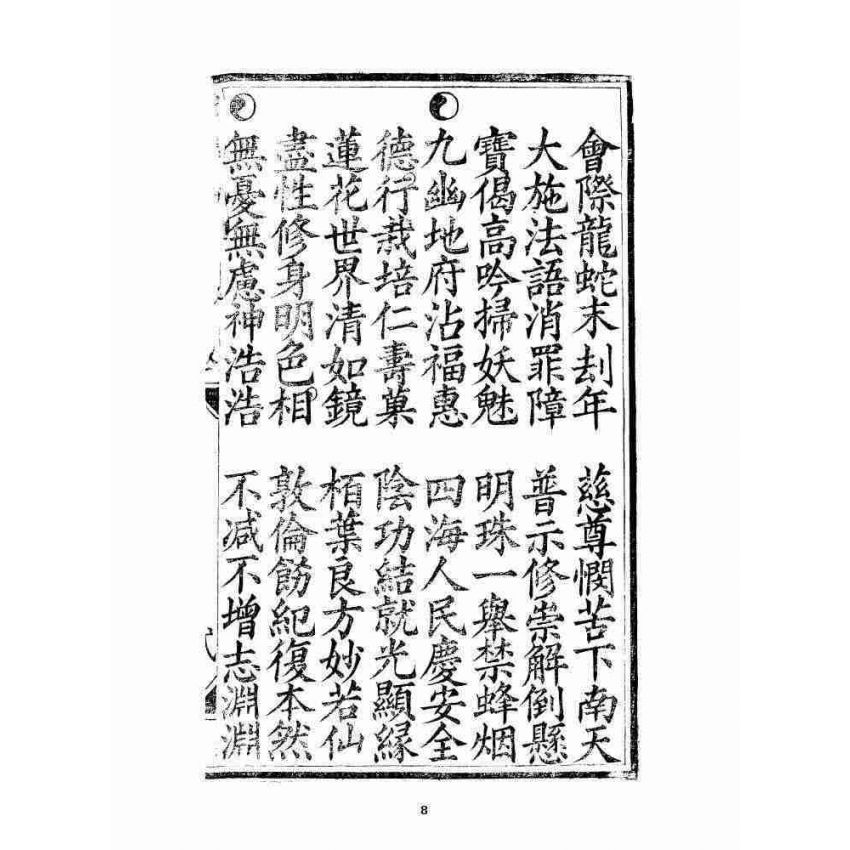 會際龍蛇末刦年　慈尊憫苦下南天
大施法語消罪障　普示修崇解倒懸
寶偈高吟掃妖魅　明珠一舉禁蜂烟
九幽地府沾福惠　四海人民慶安全
德行栽培仁壽菓　陰功結就光顯緣
蓮花世界清如鏡　栢葉良方妙若仙
盡性修身明色相　敦倫飭紀復本然
無憂無慮神浩浩　不减不增志淵淵
8